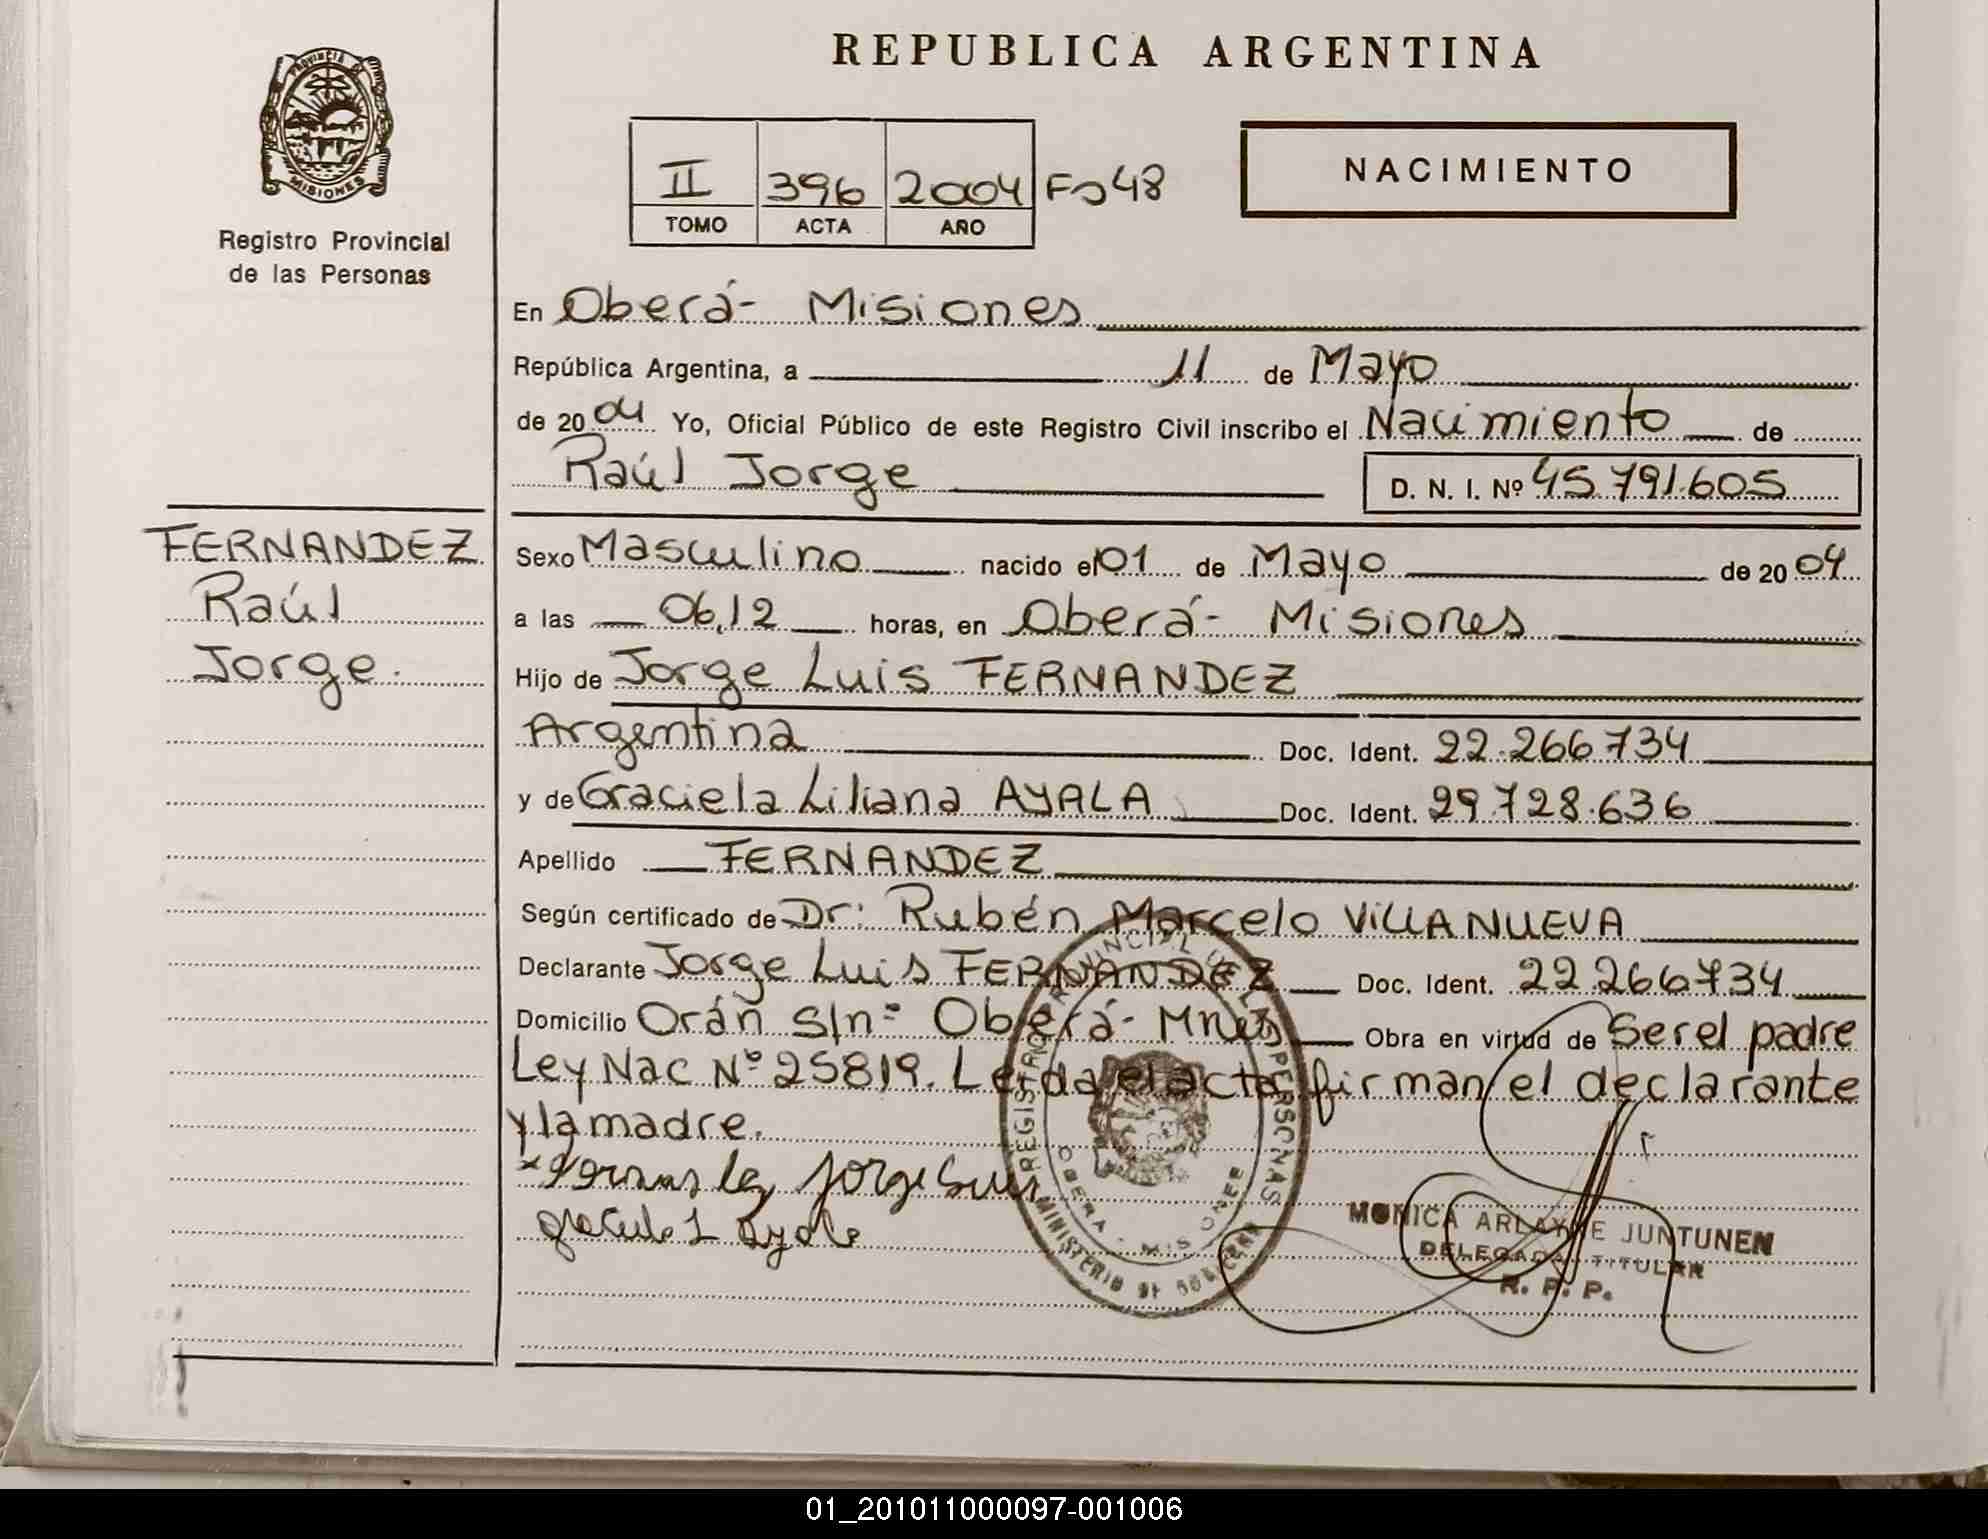 REPUBLICA ARGENTINA
PROVINCIA DE
MISIONES
Registro Provincial
de las Personas
II 396 2004 Fo 48
TOMO ACTA AÑO
NACIMIENTO
En Oberá- Misiones
República Argentina, a 11 de Mayo
de 2004 Yo, Oficial Público de este Registro Civil inscribo el Nacimiento de
Raúl Jorge D. N. I. Nº 45.791.605
FERNANDEZ
Raúl
Jorge.
Sexo Masculino nacido el 01 de Mayo de 2004
a las 06,12 horas, en Oberá- Misiones
Hijo de Jorge Luis FERNANDEZ
Argentina Doc. Ident. 22.266734
y de Graciela Liliana AYALA Doc. Ident. 29.728.636
Apellido FERNANDEZ
Según certificado de Dr: Rubén Marcelo VILLANUEVA
Declarante Jorge Luis FERNANDEZ Doc. Ident. 22.266734
Domicilio Orán s/nº Oberá- Mnes Obra en virtud de Ser el padre
Ley Nac Nº 25819. Leída el acta firman el declarante
y la madre.
Jorge Luis
L Ayala
REGISTRO PROVINCIAL DE LAS PERSONAS
OBERA - MISIONES
MINISTERIO DE GOBIERNO
MONICA ARLAYNE JUNTUNEN
DELEGADA TITULAR
R. P. P.
01_201011000097-001006